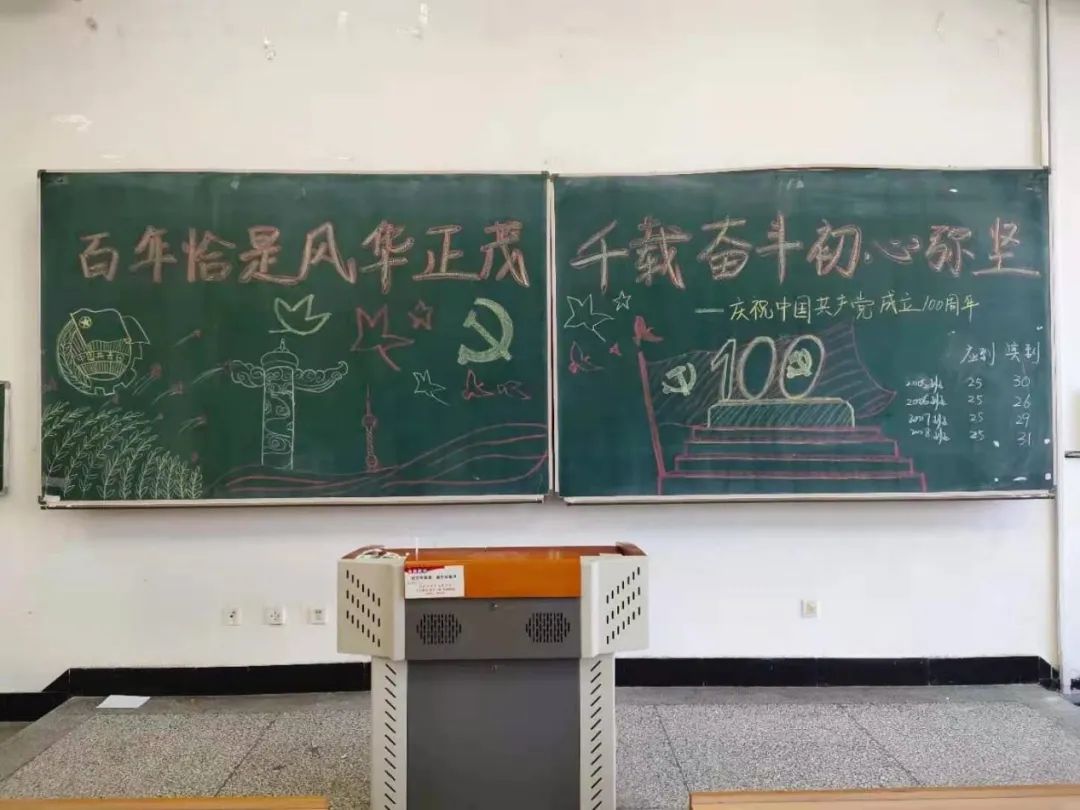 百年恰是风华正茂
千载奋斗初心弥坚
——庆祝中国共产党成立100周年
100
应到 实到
2005班 25 30
2006班 25 26
2007班 25 29
2008班 25 31